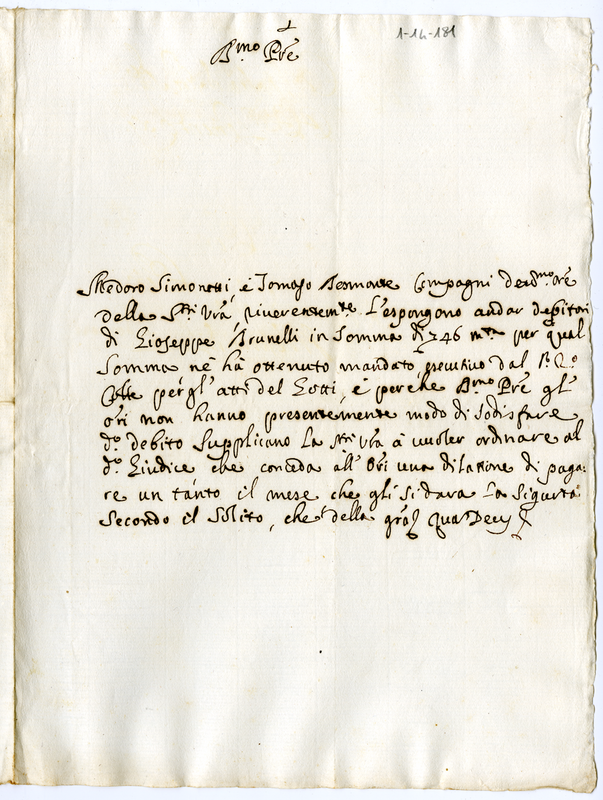 1-14-181
B.mo Pre
Medoro Simonetti, è Tomaso Compagni
della S.tà Vrã, riverentem.te L'espongono andar debitori
di Gioseppe Brunelli in somma di 746 m.ta per qual
somma nè hà ottenuto mandato, esecutivo dal P.
per gl'atti del Gotti, è perche B.mo Pre gl'
ori non hanno presentemente modo di sodisfare
d.o debito supplicano la S.tà Vrã à uuoler ordinare al
d.o Giudice che conceda all' Ori una dilatione di paga=
re un tanto il mese che gli si darà la sigurtà
secondo il solito, che della grã Quas Deus